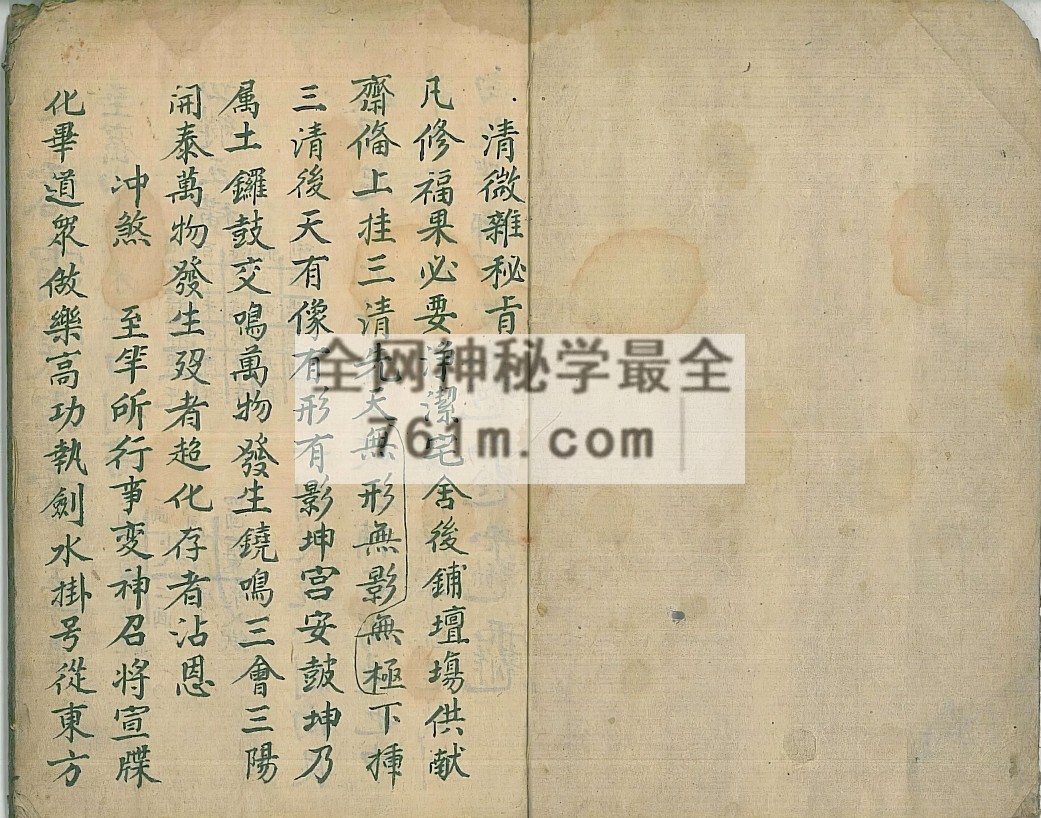 清微雜秘旨
凡修福果必要淨潔宅舍後鋪壇場供献
齋俻上挂三清先天無形無影無極下挿
三清後天有像有形有影坤宫安鼓坤乃
属土鑼鼓交鳴萬物發生鐃鳴三會三陽
開泰萬物發生殁者超化存者沾恩
冲煞 至半所行事変神召将宣牒
化畢道眾做樂高功執劍水掛号從東方
全网神秘学最全
761m.com